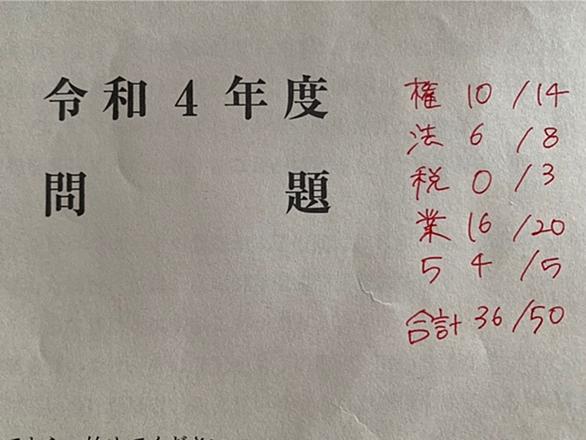 令和4年度
問題
権 10 /14
法 6 /8
税 0 /3
業 16 /20
5 4 /5
合計 36 /50